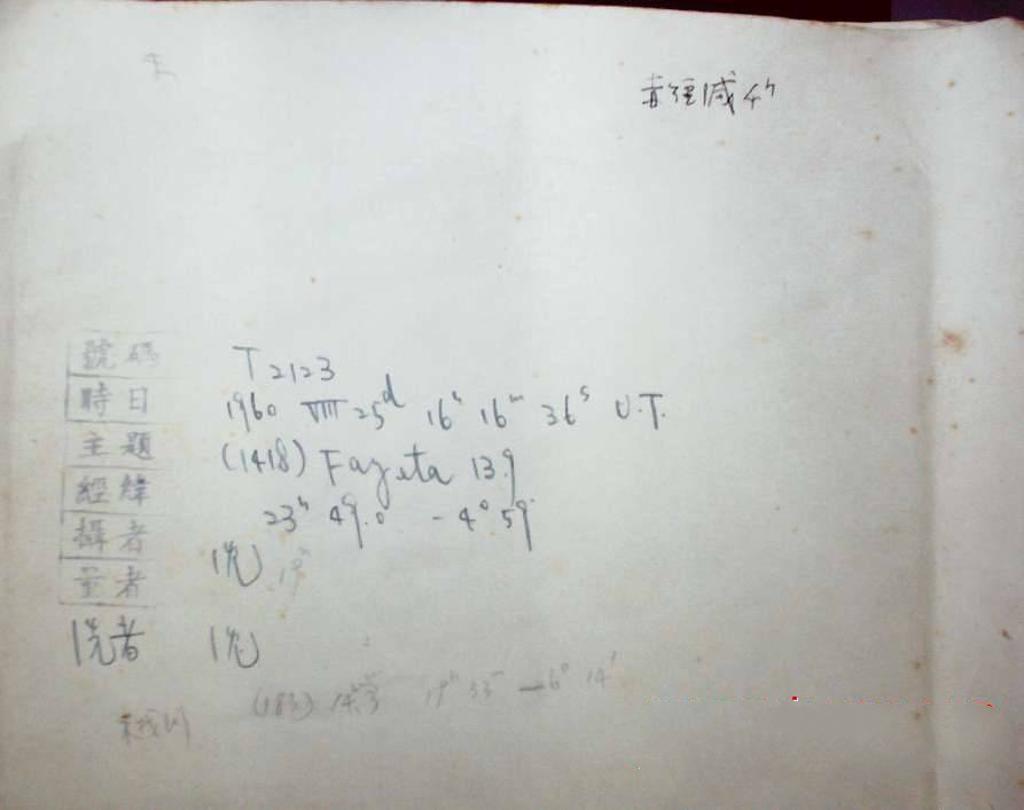 赤經減少
號碼 T2123
時日 1960 VIII 25d 16h 16m 36s U.T.
主題 (1418) Fayeta 13.9
經緯 23h 49.0 -4° 59'
攝者 洗
量者
洗者 洗
19h 33m -6° 14'